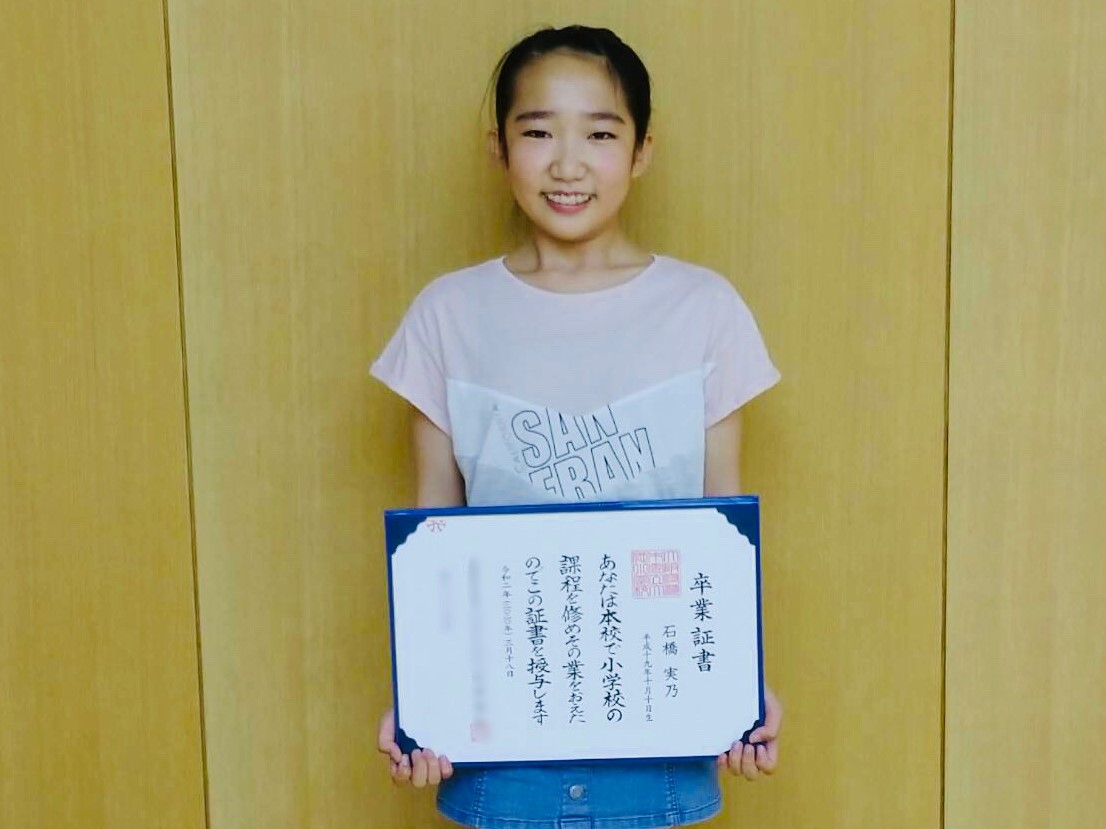 SAN
FRAN
卒業証書
石橋 実乃
平成十九年十月十日生
あなたは本校で小学校の
課程を修めその業をおえた
のでこの証書を授与します
令和二年(二〇二〇年)三月十八日